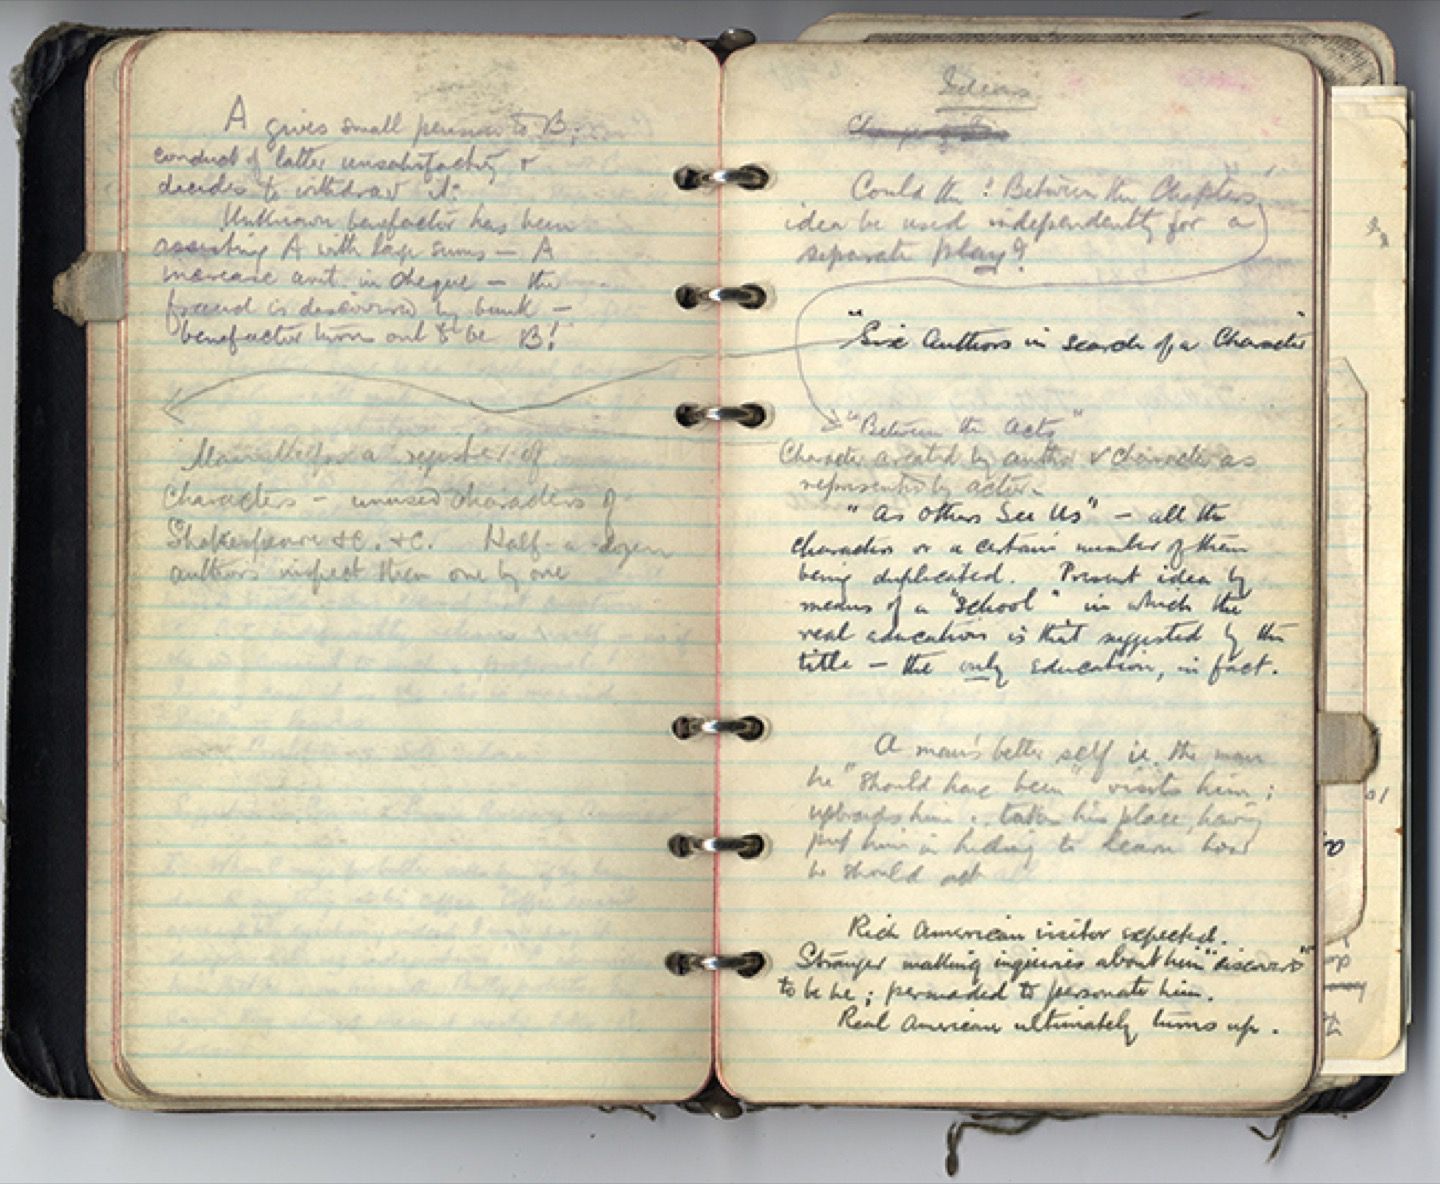 A gives small pension to B;
conduct of latter unsatisfactory &
decides to withdraw it:
Unknown benefactor has been
assisting A with large sums – A
increase amt. in cheque – the
fraud is discovered by bank –
benefactor turns out to be B!
for a register of
Characters – unused characters of
Shakespeare &c. &c. Half-a-dozen
authors inspect them one by one
Ideas
Could the : Between the Chapters
idea be used independently for a
separate play?
"Six Authors in search of a Character"
"Between the Acts"
Character created by author & character as
represented by actor.
"As Others See Us" – all the
characters or a certain number of them
being duplicated. Present idea by
means of a "school" in which the
real education is that suggested by the
title – the only education, in fact.
A man's better self ie. the man
he "should have been" visits him;
upbraids him & takes his place, having
put him in hiding to learn how
he should act
Rich American visitor expected.
Stranger making inquiries about him "discovered"
to be he; persuaded to personate him.
Real American ultimately turns up.